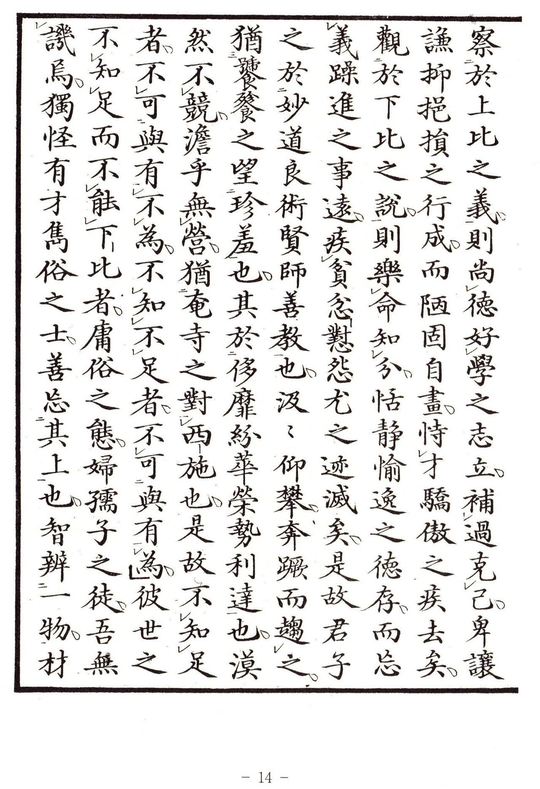 察於上比之義則尚德好學之志立補過克己卑讓
謙抑挹損之行成而陋固自畫恃才驕傲之疾去矣
觀於下比之說則樂命知分恬靜愉逸之德存而忿
義躁進之事遠疾貧忿懟怨尤之迹滅矣是故君子
之於妙道良術賢師善教也汲〻仰攀奔蹶而趨之
猶饕餮之望珍羞也其於侈靡紛華榮勢利達也漠
然不競澹乎無營猶奄寺之對西施也是故不知足
者不可與有不為不知不足者不可與有為彼世之
不知足而不能下比者庸俗之態婦孺子之徒吾無
譏焉獨怪有才雋俗之士善忘其上也智辨一物材
- 14 -